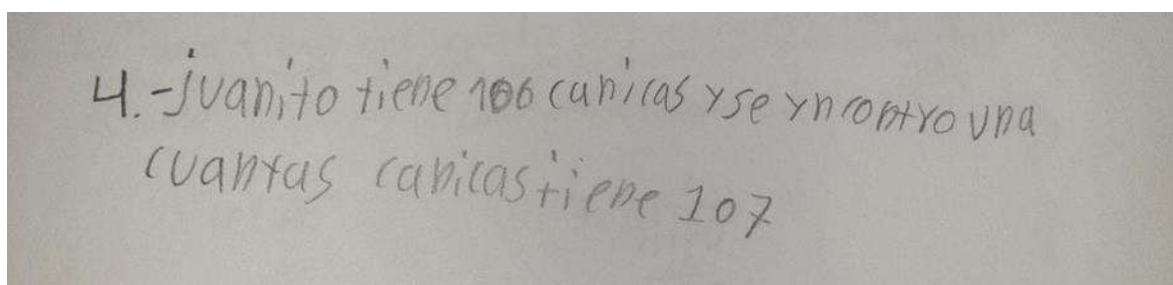 4.-juanito tiene 106 canicas y se yncontro una
cuantas canicas tiene 107